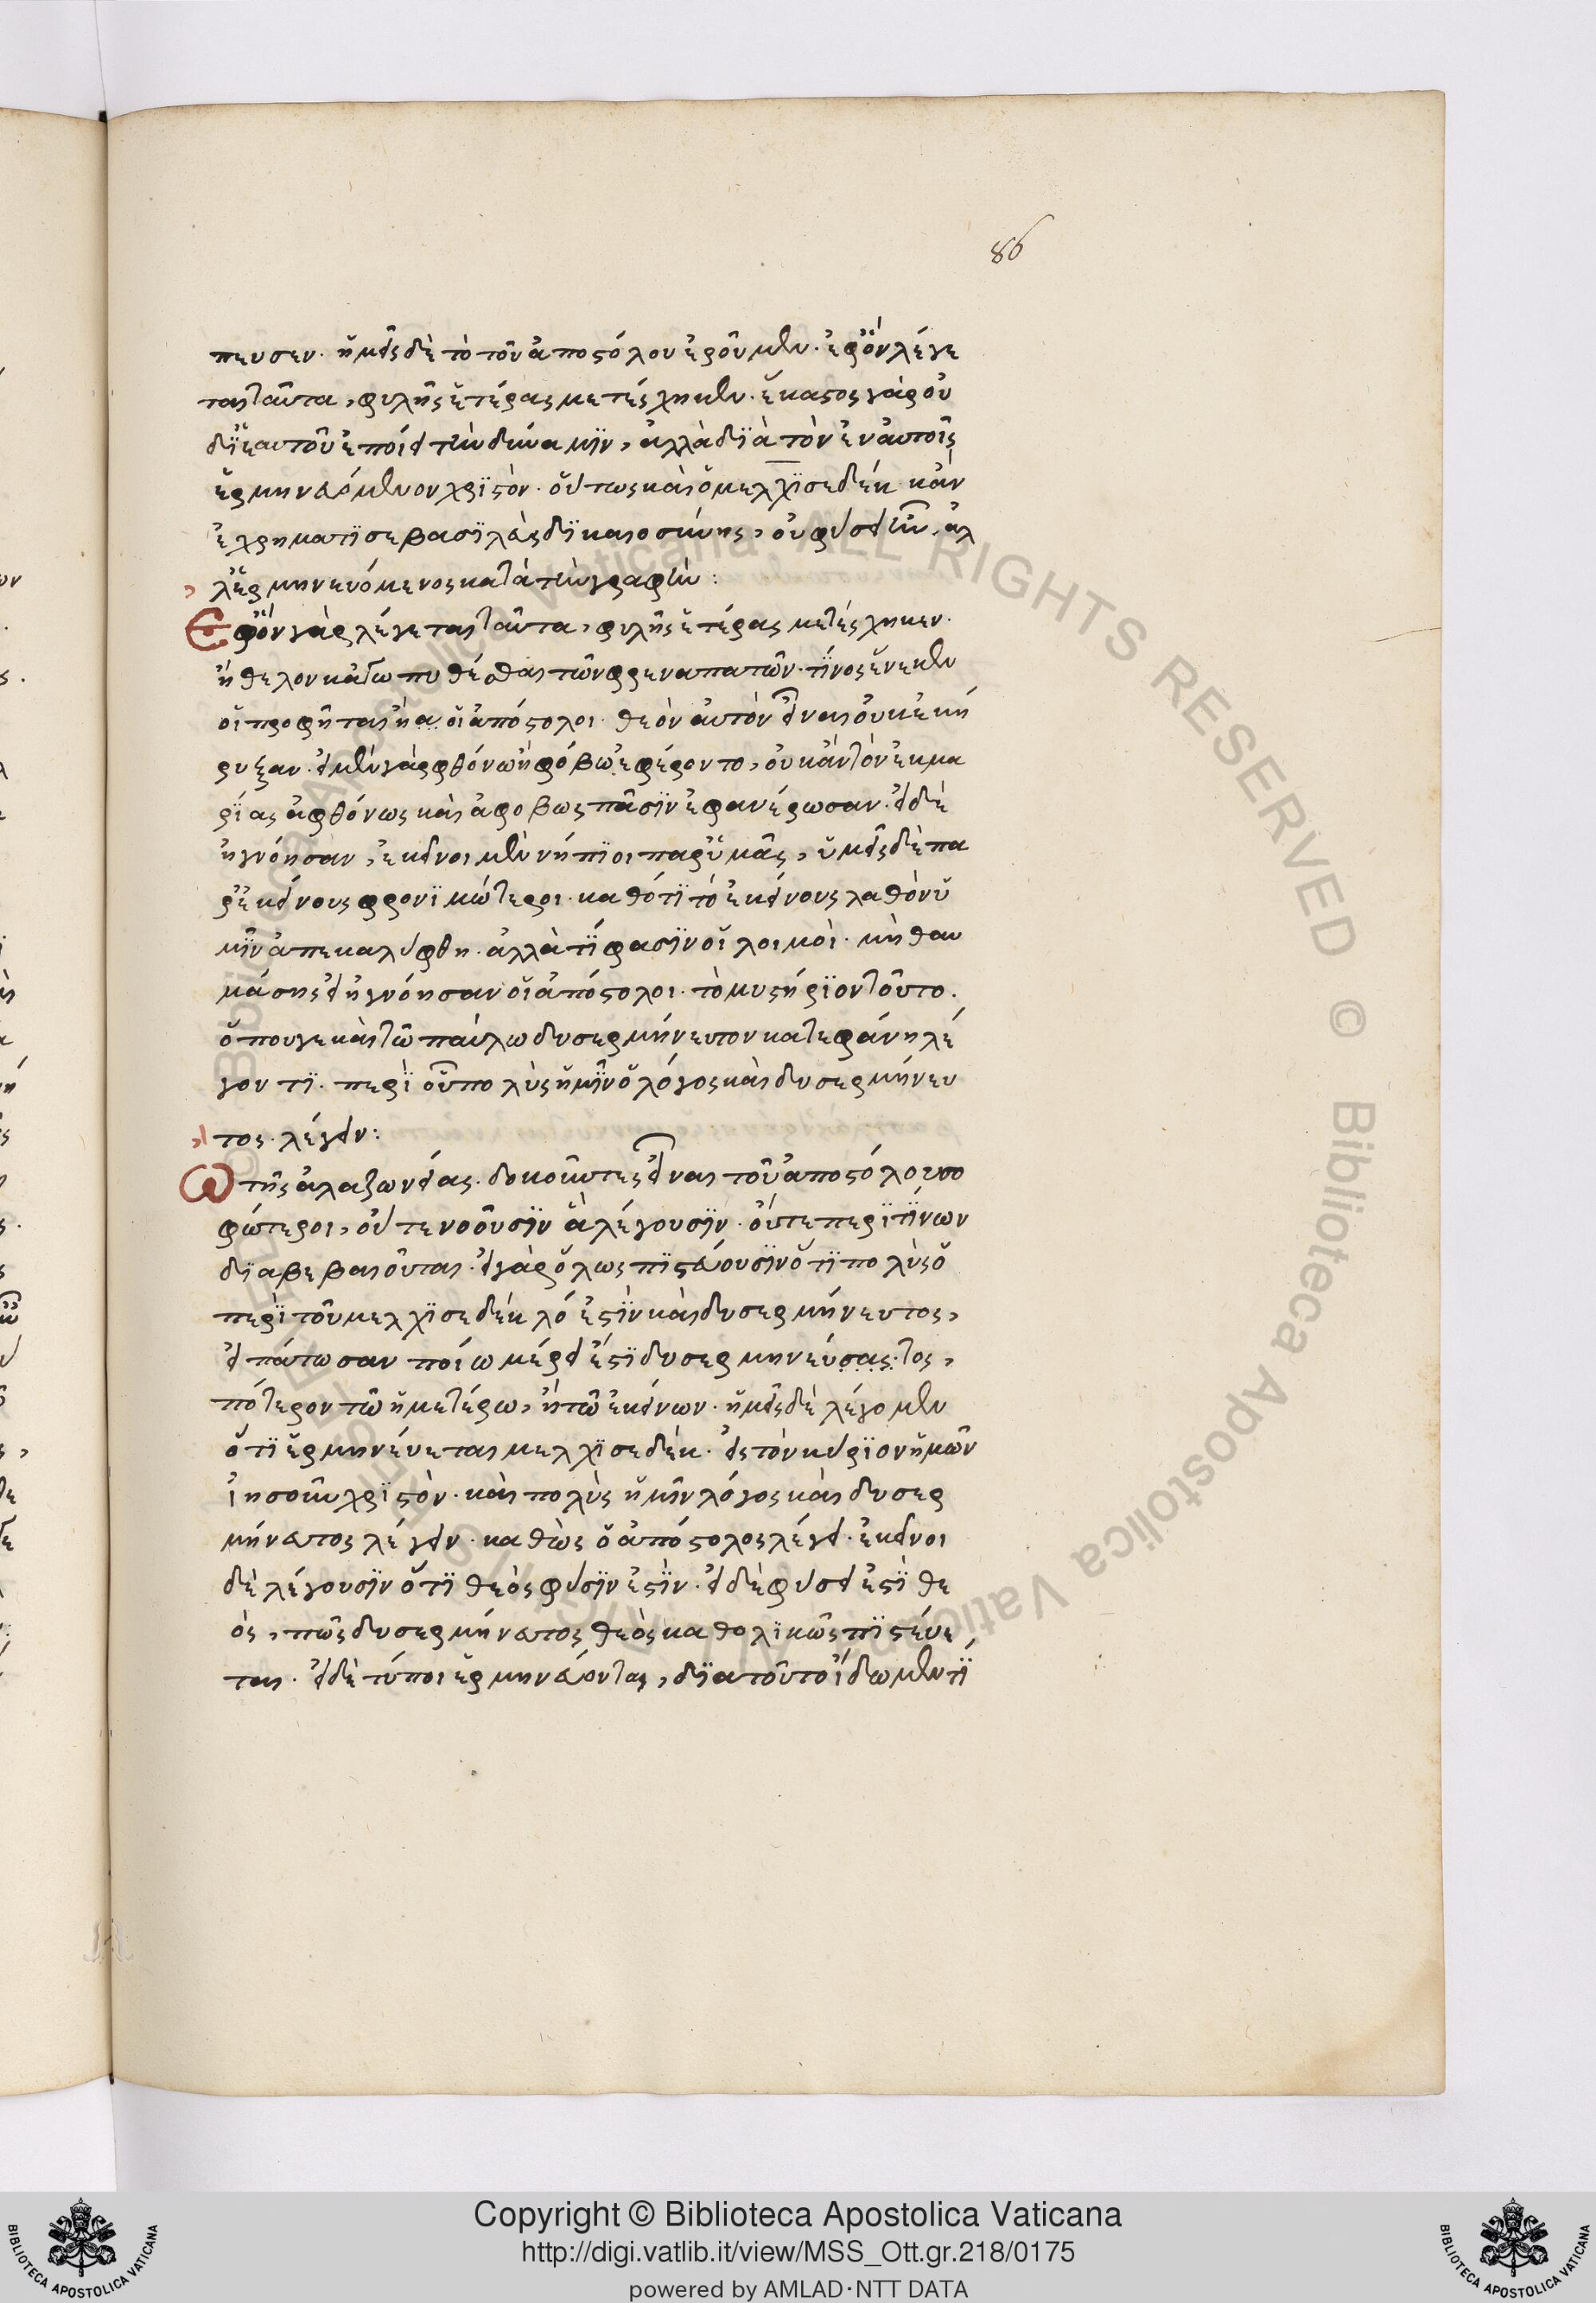 86
πευσεν. ἡμεῖς δὲ τὸ τοῦ ἀποστόλου ἐροῦμεν. ἐφ' ὃν λέγε
ται ταῦτα, φυλῆς ἑτέρας μετέσχηκεν. ἕκαστος γὰρ οὐ
δϊ' ἑαυτοῦ ἐποίει τὴν δύναμϊν, ἀλλὰ δϊὰ τὸν ἐν αὐτοῖς
ἑρμηνευόμενον χρϊστὸν. οὕτως καὶ ὁ μελχϊσεδὲκ κἂν
ἐχρημάτϊσε βασϊλεὺς δϊκαιοσύνης, οὐ φύσει ἦν, ἀλ
λ' ἑρμηνευόμενος κατὰ τὴν γραφὴν:
Ἐφ' ὃν γὰρ λέγεται ταῦτα, φυλῆς ἑτέρας μετέσχηκεν.
ἤθελον κἀγὼ πυθέσθαι τῶν φρεναπατῶν. τίνος ἕνεκεν
οἱ προφῆται ἢ οἱ ἀπόστολοι θεὸν αὐτὸν εἶναι οὐκ ἐκή
ρυξαν. εἰ μὲν γὰρ φθόνω ἢ φόβω ἐφέροντο, οὐκ ἂν τὸν ἐκ μα
ρϊας ἀφθόνως καὶ ἀφόβως πᾶσϊν ἐφανέρωσαν. εἰ δὲ
ἠγνόησαν, ἐκεῖνοι μὲν νήπϊοι παρ' ὑμᾶς, ὑμεῖς δὲ πα
ρ' ἐκείνους φρονϊμώτεροι. καθότϊ τὸ ἐκείνους λαθὸν ὑ
μῖν ἀπεκαλύφθη. ἀλλὰ τί φασϊν οἱ λοιμοὶ. μὴ θαυ
μάσης εἰ ἠγνόησαν οἱ ἀπόστολοι τὸ μυστήρϊον τοῦτο.
ὅπουγε καὶ τῶ παύλω δυσερμήνευτον κατεφάνη λέ
γοντϊ. περϊ οὗ πολὺς ἡμῖν ὁ λόγος καὶ δυσερμήνευ
τος λέγειν:
Ὢ τῆς ἀλαζωνείας. δοκοῦντες εἶναι τοῦ ἀποστόλου σο
φώτεροι, οὔτε νοοῦσϊν ἃ λέγουσϊν. οὔτε περϊ τίνων
δϊαβεβαιοῦνται. εἰ γὰρ ὅλως πϊστεύουσϊν ὅτϊ πολὺς ὁ
περϊ τοῦ μελχϊσεδὲκ λό ἐστϊν καὶ δυσερμήνευτος,
εἰπάτωσαν ποίω μέρει ἐστϊ δυσερμηνεύσας.τος,
πότερον τῶ ἡμετέρω, ἢ τῶ ἐκείνων. ἡμεῖς δὲ λέγομεν
ὅτϊ ἑρμηνεύεται μελχϊσεδὲκ. εἰς τὸν κύρϊον ἡμῶν
ἰησοῦν χρϊστὸν. καὶ πολὺς ἡμῖν λόγος καὶ δυσερ
μήνευτος λέγειν. καθὼς ὁ ἀπόστολος λέγει. ἐκεῖνοι
δὲ λέγουσϊν ὅτϊ θεὸς φύσϊν ἐστϊν. εἰ δὲ φύσει ἐστϊ θε
ὸς, πῶς δυσερμήνευτος θεὸς καθολϊκῶς πϊστεύε
ται. εἰ δὲ τύποι ἑρμηνεύονται, δϊατοῦτο ἴδωμεν τί
Copyright © Biblioteca Apostolica Vaticana
http://digi.vatlib.it/view/MSS_Ott.gr.218/0175
powered by AMLAD·NTT DATA